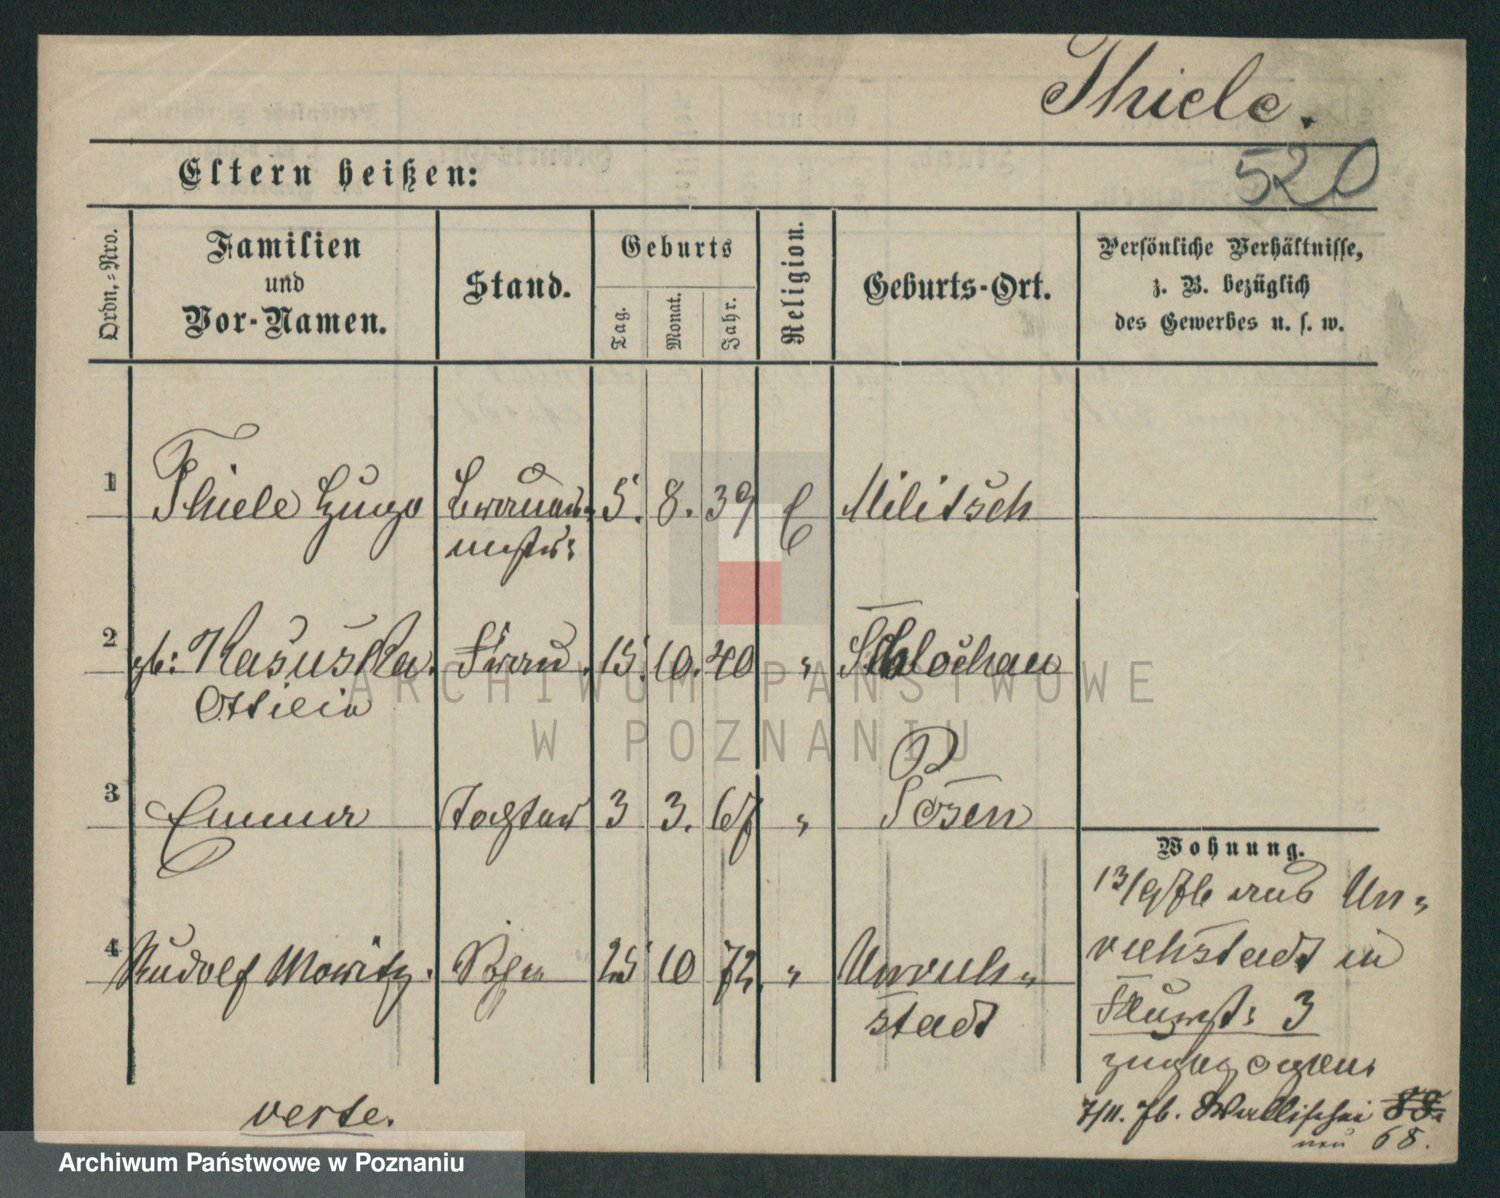 Thiele.
520
Eltern heißen:
Ordn.-Nro.
Familien
und
Vor-Namen.
Stand.
Geburts
Tag.
Monat.
Jahr.
Religion.
Geburts-Ort.
Persönliche Verhältnisse,
z. B. bezüglich
des Gewerbes u. s. w.
1 Thiele Hugo 5. 8. 39 Militsch
2 gb: Kasuska Frau 15. 10. 40 " Schlochau
Ottilie
3 Emma Tochter 3 3. 67 " Posen
4 Rudolf Moritz. Sohn 25 10 72. " Unruh-
stadt
Wohnung.
13/9 76 aus Un-
ruhstadt in
3
zugezogen.
7/11. 76. Wallischei 88.
neu 68.
verte.
ARCHIWUM PAŃSTWOWE
W POZNANIU
Archiwum Państwowe w Poznaniu